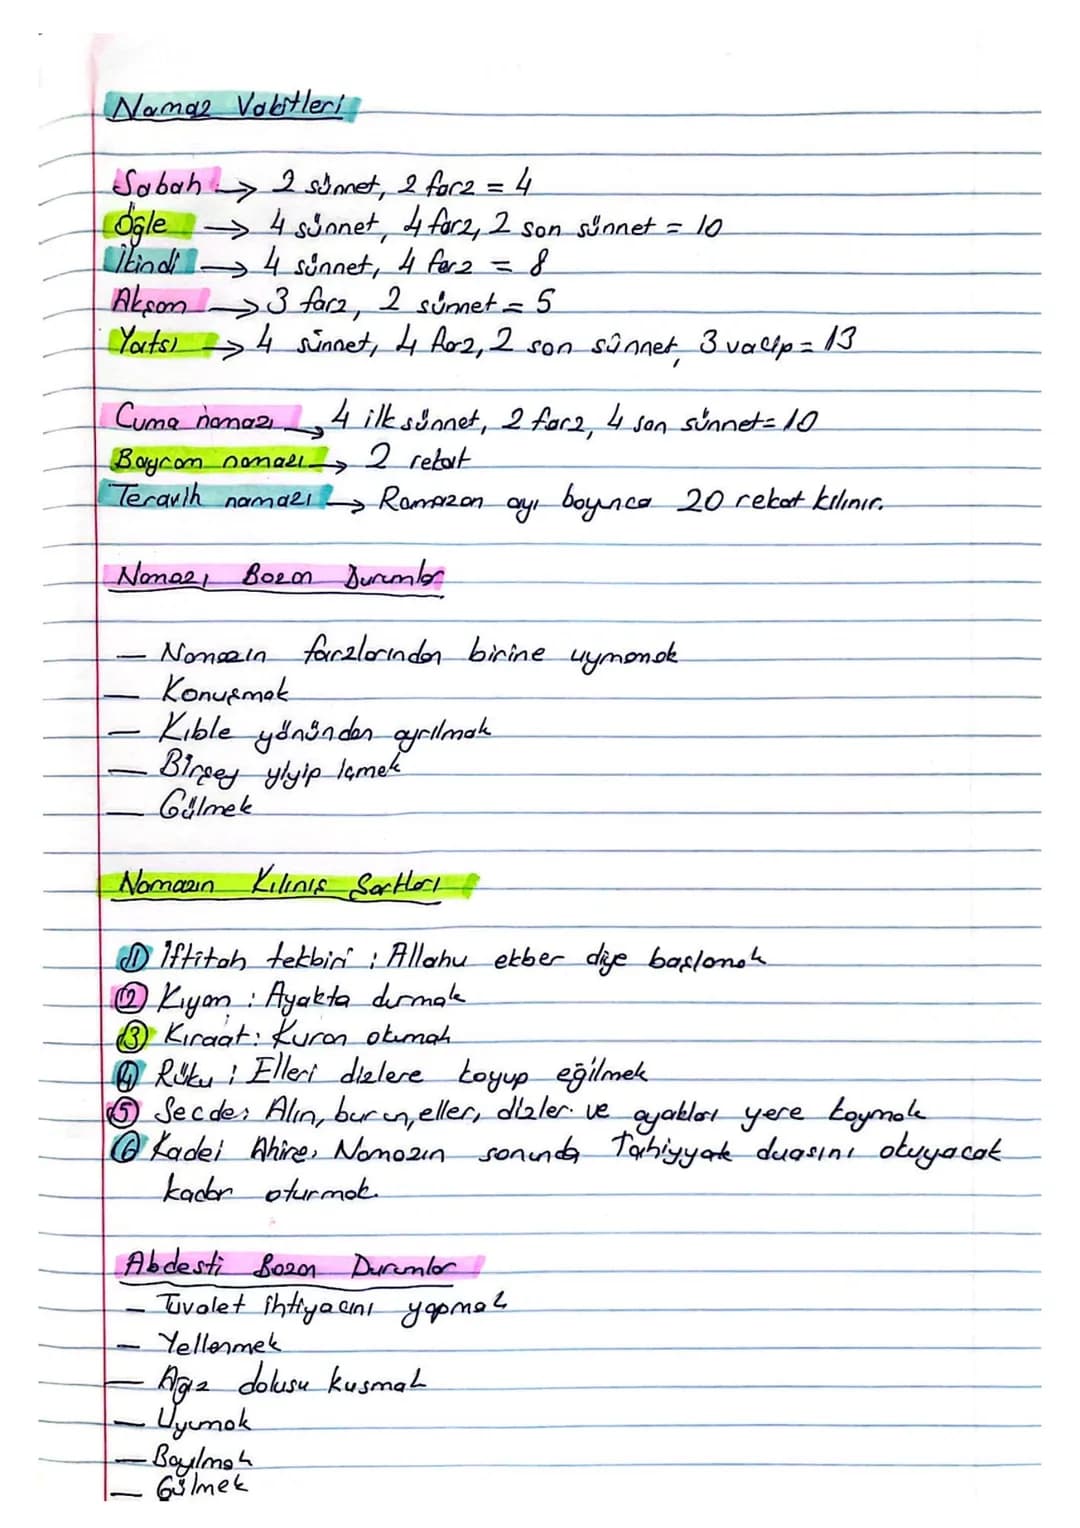 Namaz Vakitleri
Sabah → 2 sünnet, 2 farz = 4
Öğle → 4 sünnet, 4 farz, 2 son sünnet = 10
İkindi → 4 sünnet, 4 farz = 8
Akşam → 3 farz, 2 sünnet = 5
Yatsı → 4 sünnet, 4 farz, 2 son sünnet, 3 vacip = 13
Cuma namazı → 4 ilk sünnet, 2 farz, 4 son sünnet = 10
Bayram namazı → 2 rekat
Teravih namazı → Ramazan ayı boyunca 20 rekat kılınır.
Namazı Bozan Durumlar
— Namazın farzlarından birine uymamak
— Konuşmak
— Kıble yönünden ayrılmak
— Birşey yiyip içmek
— Gülmek
Namazın Kılınış Şartları
1) İftitah tekbiri : Allahu ekber diye başlamak
2) Kıyam : Ayakta durmak
3) Kıraat : Kuran okumak
4) Rüku : Elleri dizlere koyup eğilmek
5) Secde : Alın, burun, eller, dizler ve ayakları yere koymak
6) Kadei Ahire, Namazın sonunda Tahiyyak duasını okuyacak
kadar oturmak.
Abdesti Bozan Durumlar
— Tuvalet ihtiyacını yapmak
— Yellenmek
— Ağız dolusu kusmak
— Uyumak
— Bayılmak
— Gülmek